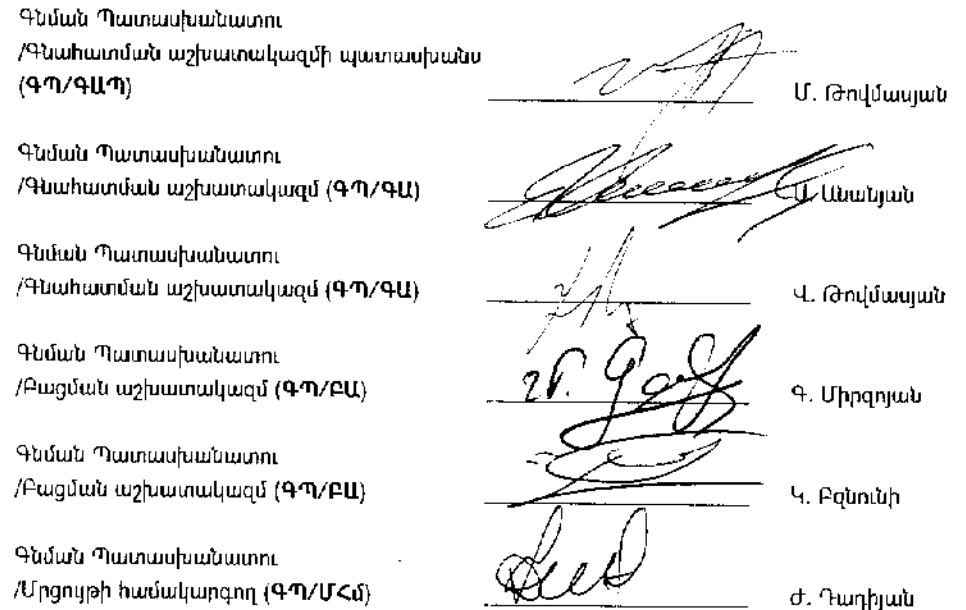 Գնման Պատասխանատու
/Գնահատման աշխատակազմի պատասխանս
(ԳՊ/ԳԱՊ)
Մ. Թովմասյան
Գնման Պատասխանատու
/Գնահատման աշխատակազմ (ԳՊ/ԳԱ)
Ա. Անանյան
Գնման Պատասխանատու
/Գնահատման աշխատակազմ (ԳՊ/ԳԱ)
Վ. Թովմասյան
Գնման Պատասխանատու
/Բացման աշխատակազմ (ԳՊ/ԲԱ)
Գ. Միրզոյան
Գնման Պատասխանատու
/Բացման աշխատակազմ (ԳՊ/ԲԱ)
Կ. Բզնունի
Գնման Պատասխանատու
/Մրցույթի համակարգող (ԳՊ/ՄՀմ)
Ժ. Դադիյան